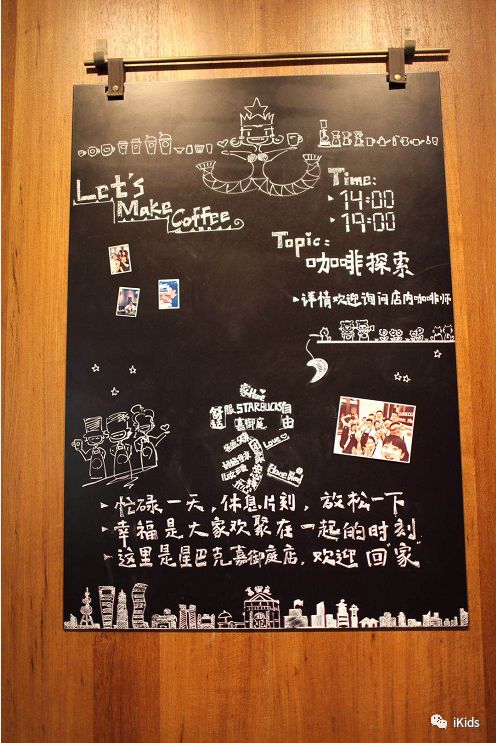 Let's
Make
Coffee
Time:
14:00
19:00
Topic:
咖啡探索
详情欢迎询问店内咖啡师
家Home
舒服STARBUCKS自由
嘉御庭
Love
忙碌一天,休息片刻,放松一下
幸福是大家欢聚在一起的时刻
这里是星巴克嘉御庭店,欢迎回"家"
iKids